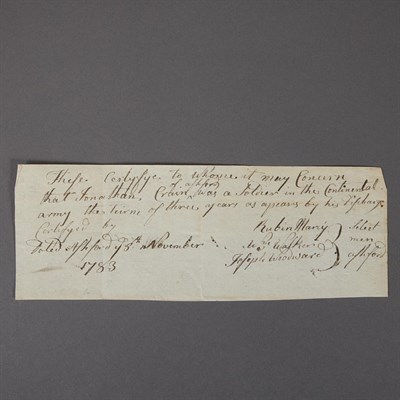 These Certifye to whome it may Concern
of Ashford
that Jonathan Crain was a Soldier in the Continental
army the term of three years as apears by his Discharg
Certifyed by
Dated Ashford ye 5th November
1783
Rubin Marcy
Wm Walker
Joseph Woodward
Select
men
Ashford